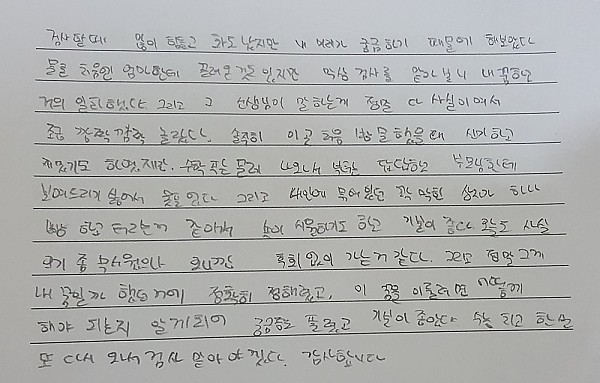 검사할때 많이 힘들고 화도 났지만 내 미래가 궁금하기 때문에 해보았다
물론 처음엔 엄마한테 끌려온것도 있지만 막상 검사를 받아보니 내 꿈하고
거의 일치했다 그리고 그 선생님이 말하는게 정말 다 사실이여서
조금 깜짝깜짝 놀랐다. 솔직히 이 곳 처음 방문했을때 신기하고
재밌기도 하였지만. 수학 푸는 문제 나오니 답답하고 부모님한테
보여드리기 싫어서 울고 있다 그리고 내안에 묶여있던 꽉 막힌 상자가 하나
빵 하고 터지는거 같아서 속이 시원하기도 하고 기분이 좋다 오늘도 사실
오기 좀 무서웠으나 오니깐 후회 없이 가는거 같다. 그리고 정말 그게
내 꿈일까 했던 거에 정확히 정해졌고, 이 꿈을 이루려면 어떻게
해야 되는지 알게되어 궁금증도 풀렸고 기분이 좋았다 수능 치고 한번
또 다시 와서 검사 받아야 겠다. 감사합니다